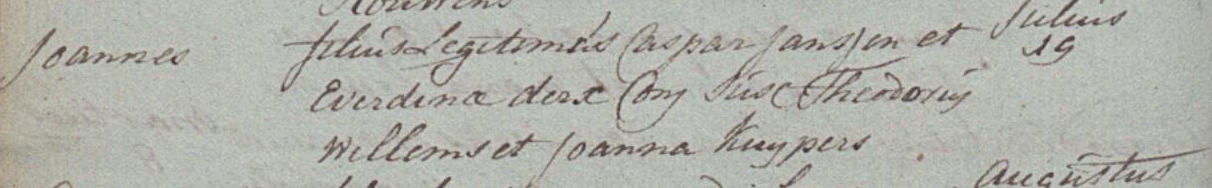 Julius
Joannes filius Legitimus Caspar Janssen et 19
Everdina derx Conj Susc Theodorus
Willems et Joanna Kuypers
Augustus